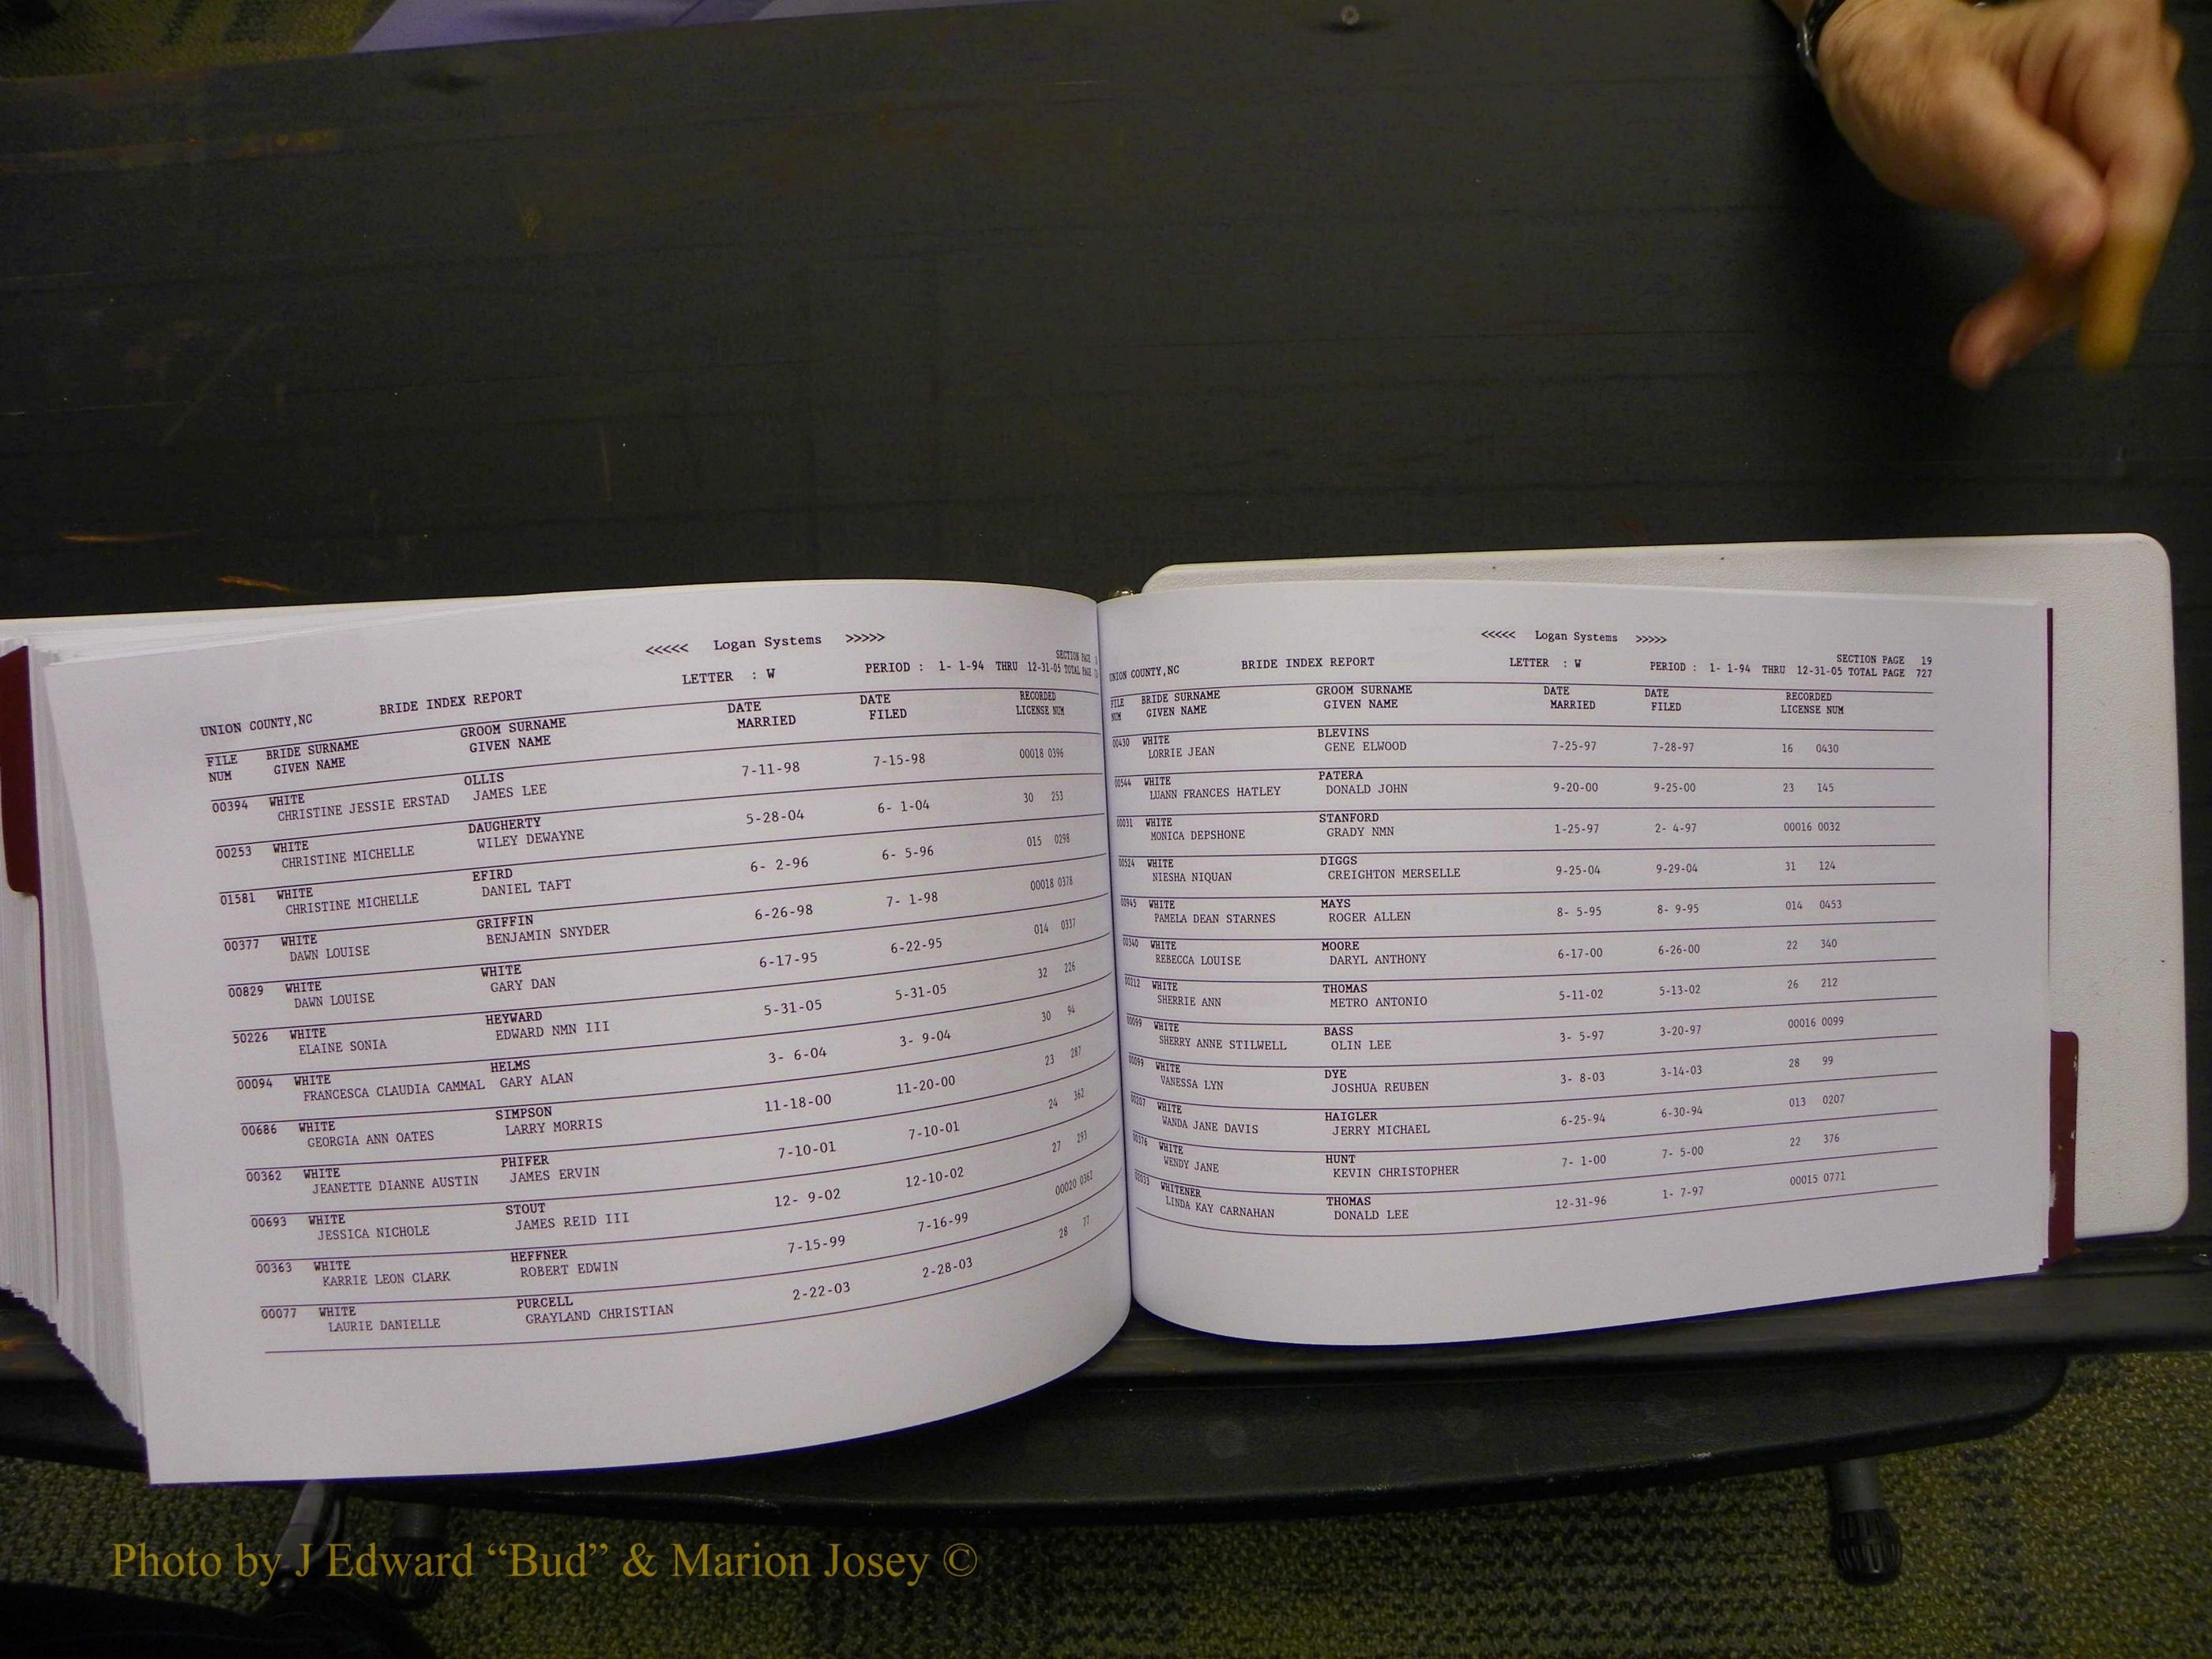 <<<<< Logan Systems >>>>>
UNION COUNTY,NC BRIDE INDEX REPORT LETTER : W PERIOD : 1- 1-94 THRU 12-31-05 SECTION PAGE
TOTAL PAGE
FILE BRIDE SURNAME GROOM SURNAME DATE DATE RECORDED
NUM GIVEN NAME GIVEN NAME MARRIED FILED LICENSE NUM
00394 WHITE OLLIS 7-11-98 7-15-98 00018 0396
CHRISTINE JESSIE ERSTAD JAMES LEE
00253 WHITE DAUGHERTY 5-28-04 6- 1-04 30 253
CHRISTINE MICHELLE WILEY DEWAYNE
01581 WHITE EFIRD 6- 2-96 6- 5-96 015 0298
CHRISTINE MICHELLE DANIEL TAFT
00377 WHITE GRIFFIN 6-26-98 7- 1-98 00018 0378
DAWN LOUISE BENJAMIN SNYDER
00829 WHITE WHITE 6-17-95 6-22-95 014 0337
DAWN LOUISE GARY DAN
50226 WHITE HEYWARD 5-31-05 5-31-05 32 226
ELAINE SONIA EDWARD NMN III
00094 WHITE HELMS 3- 6-04 3- 9-04 30 94
FRANCESCA CLAUDIA CAMMAL GARY ALAN
00686 WHITE SIMPSON 11-18-00 11-20-00 23 287
GEORGIA ANN OATES LARRY MORRIS
00362 WHITE PHIFER 7-10-01 7-10-01 24 362
JEANETTE DIANNE AUSTIN JAMES ERVIN
00693 WHITE STOUT 12- 9-02 12-10-02 27 293
JESSICA NICHOLE JAMES REID III
00363 WHITE HEFFNER 7-15-99 7-16-99 00020 0362
KARRIE LEON CLARK ROBERT EDWIN
00077 WHITE PURCELL 2-22-03 2-28-03 28 77
LAURIE DANIELLE GRAYLAND CHRISTIAN
<<<<< Logan Systems >>>>>
UNION COUNTY,NC BRIDE INDEX REPORT LETTER : W PERIOD : 1- 1-94 THRU 12-31-05 SECTION PAGE 19
TOTAL PAGE 727
FILE BRIDE SURNAME GROOM SURNAME DATE DATE RECORDED
NUM GIVEN NAME GIVEN NAME MARRIED FILED LICENSE NUM
00430 WHITE BLEVINS 7-25-97 7-28-97 16 0430
LORRIE JEAN GENE ELWOOD
00544 WHITE PATERA 9-20-00 9-25-00 23 145
LUANN FRANCES HATLEY DONALD JOHN
00031 WHITE STANFORD 1-25-97 2- 4-97 00016 0032
MONICA DEPSHONE GRADY NMN
00524 WHITE DIGGS 9-25-04 9-29-04 31 124
NIESHA NIQUAN CREIGHTON MERSELLE
00945 WHITE MAYS 8- 5-95 8- 9-95 014 0453
PAMELA DEAN STARNES ROGER ALLEN
00340 WHITE MOORE 6-17-00 6-26-00 22 340
REBECCA LOUISE DARYL ANTHONY
00212 WHITE THOMAS 5-11-02 5-13-02 26 212
SHERRIE ANN METRO ANTONIO
00099 WHITE BASS 3- 5-97 3-20-97 00016 0099
SHERRY ANNE STILWELL OLIN LEE
00099 WHITE DYE 3- 8-03 3-14-03 28 99
VANESSA LYN JOSHUA REUBEN
00207 WHITE HAIGLER 6-25-94 6-30-94 013 0207
WANDA JANE DAVIS JERRY MICHAEL
00376 WHITE HUNT 7- 1-00 7- 5-00 22 376
WENDY JANE KEVIN CHRISTOPHER
02033 WHITENER THOMAS 12-31-96 1- 7-97 00015 0771
LINDA KAY CARNAHAN DONALD LEE
Photo by J Edward “Bud” & Marion Josey ©